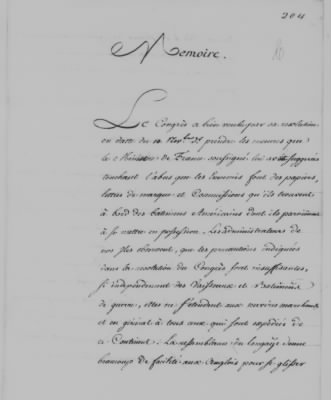 204
Memoire.
Le Congrès a bien voulu par sa resolution
en datte du 12 Nov.bre prendre les mesures que
le Ministre de France soussigné lui a suggerées
touchant l'abus que les Ennemis font des papiers,
lettres de marque et Commissions qu'ils trouvent
à bord des batimens Américains dont ils parviennent
à se mettre en possession. Les administrateurs de
nos Isles observent, que les precautions indiquées
dans la resolution du Congrès sont insuffisantes,
si independamment des Vaisseaux et Batimens
de guerre, elles ne s'étendent aux navires marchands
et en général à tous ceux qui sont expediés de
ce Continent: La ressemblance du langage donne
beaucoup de facilité aux Anglois pour se glisser